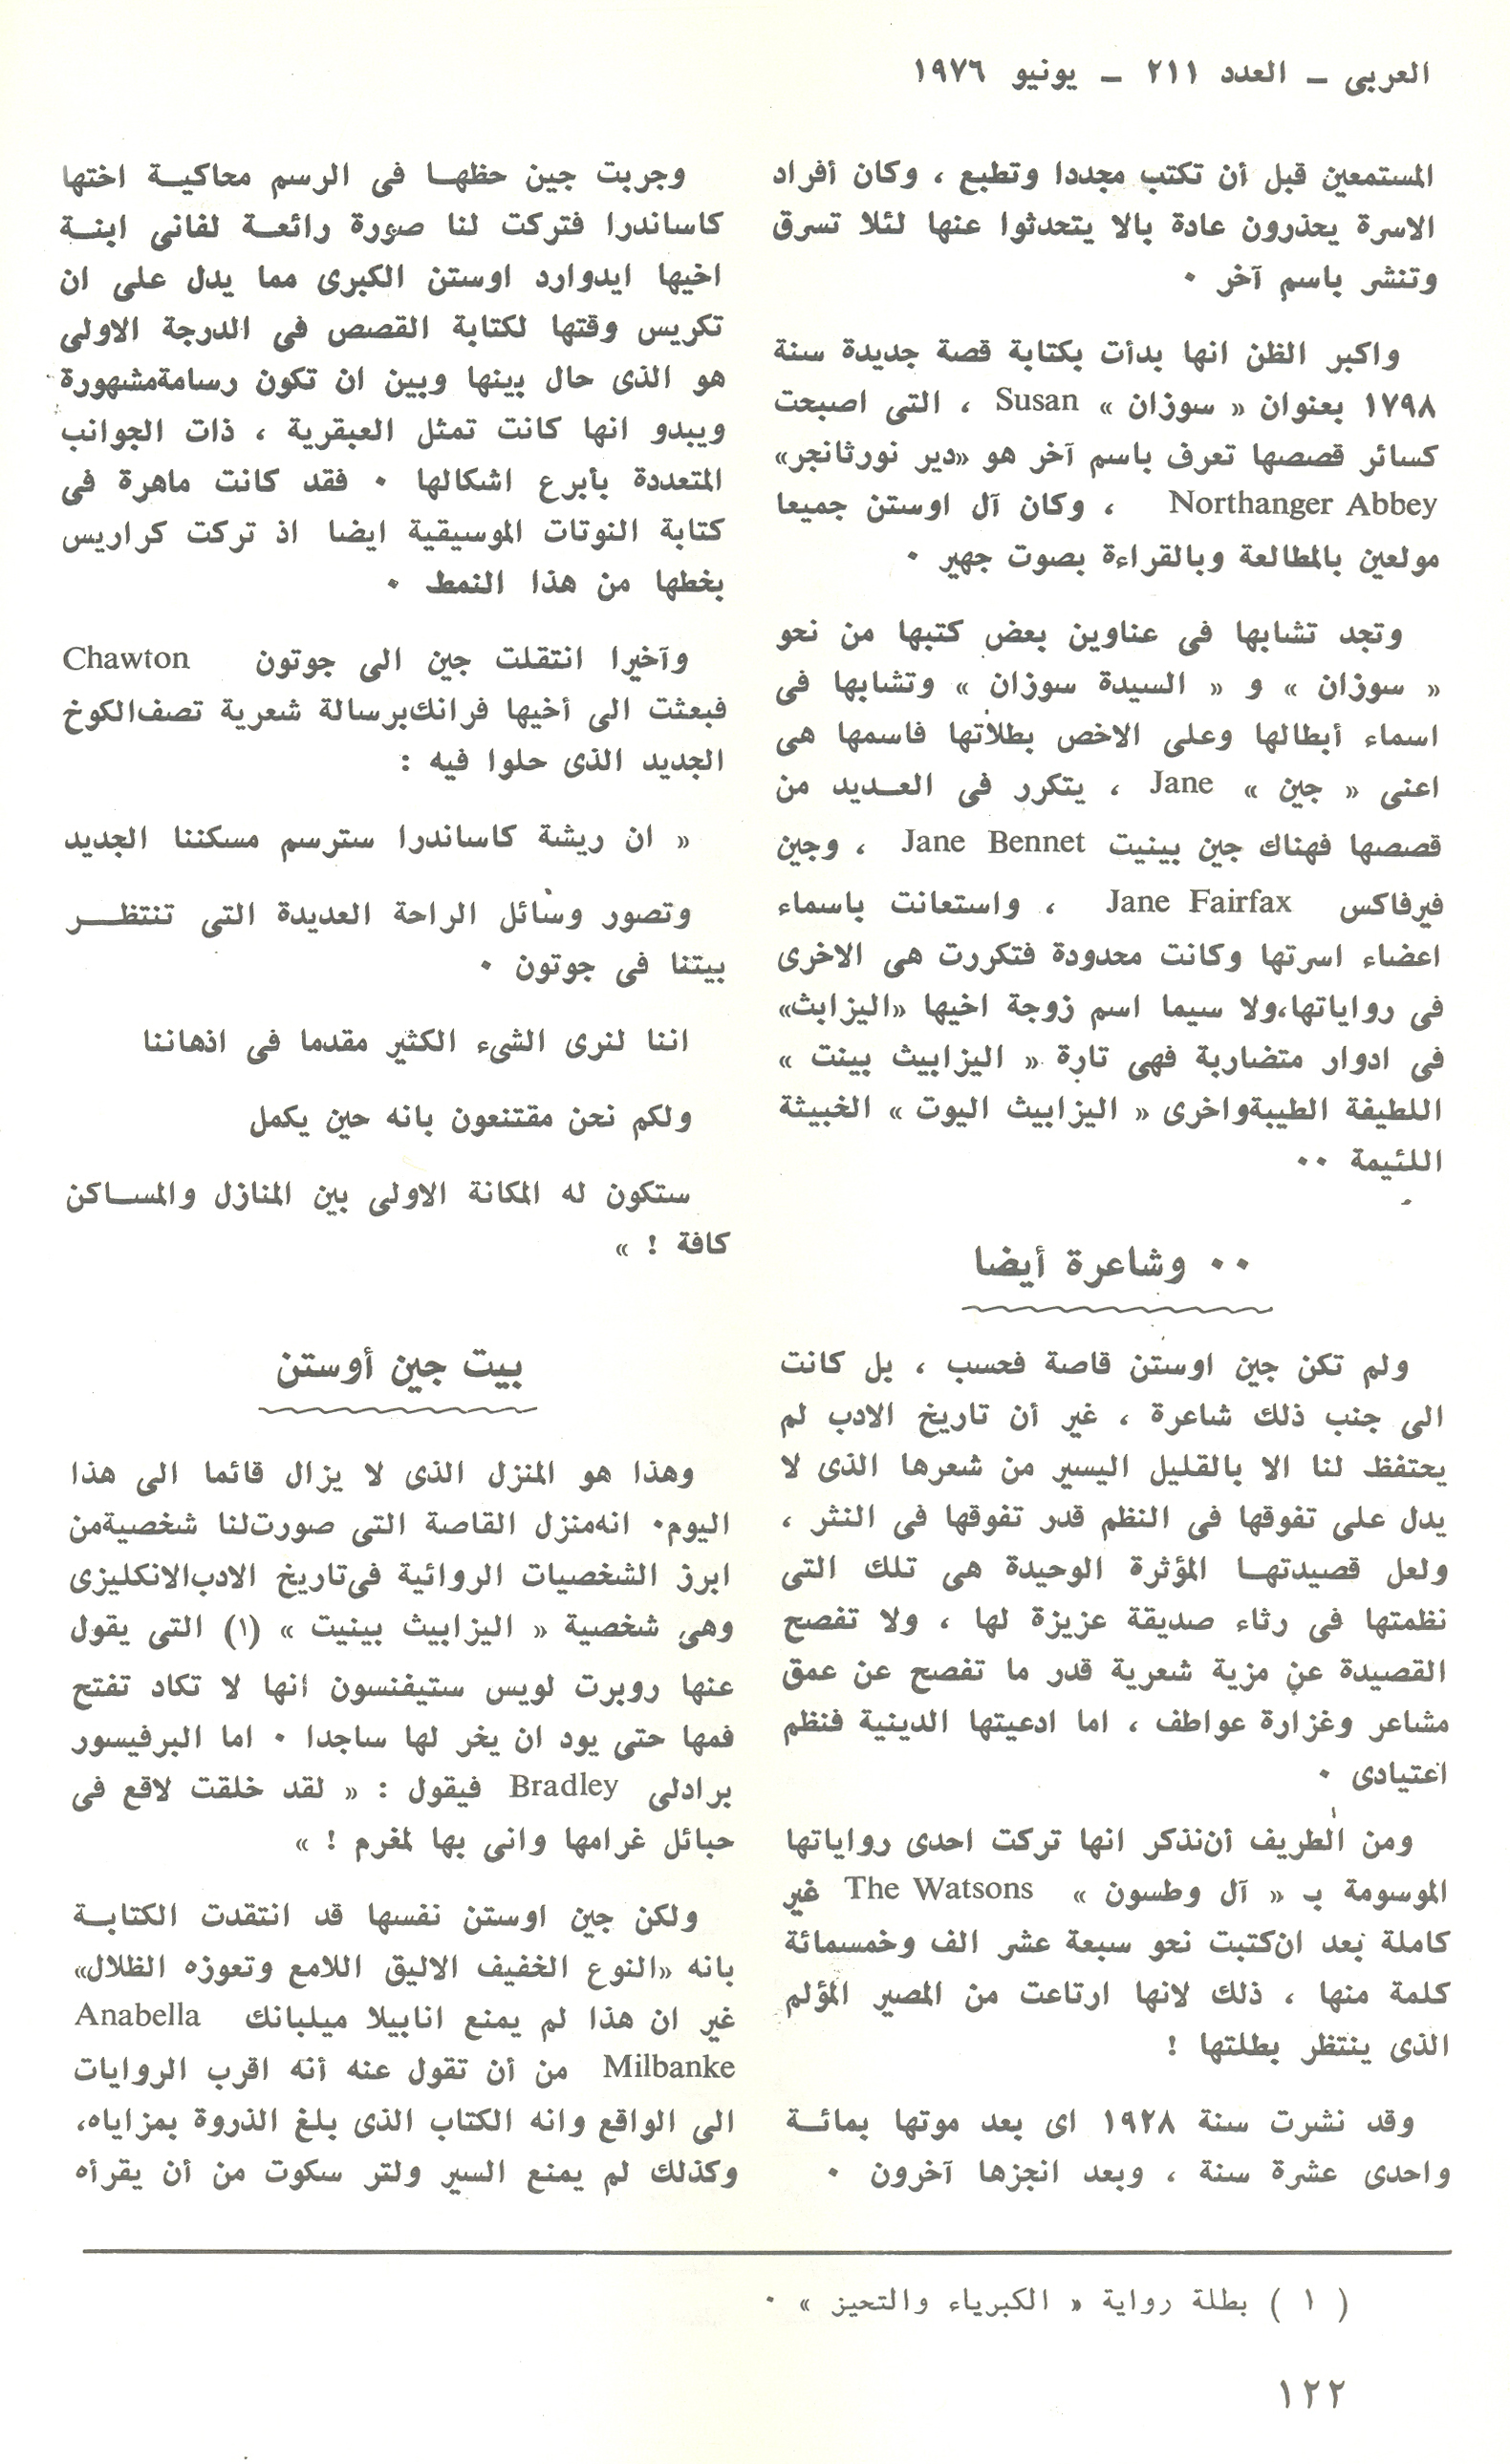 العربى ـ العدد ٢١١ ـ يونيو ١٩٧٦
المستمعين قبل أن تكتب مجددا وتطبع ، وكان أفراد
الاسرة يحذرون عادة بالا يتحدثوا عنها لئلا تسرق
وتنشر باسم آخر ٠
واكبر الظن انها بدأت بكتابة قصة جديدة سنة
١٧٩٨ بعنوان « سوزان » Susan ، التى اصبحت
كسائر قصصها تعرف باسم آخر هو «دير نورثانجر»
Northanger Abbey ، وكان آل اوستن جميعا
مولعين بالمطالعة وبالقراءة بصوت جهير ٠
وتجد تشابها فى عناوين بعض كتبها من نحو
« سوزان » و « السيدة سوزان » وتشابها فى
اسماء أبطالها وعلى الاخص بطلاتها فاسمها هى
اعنى « جين » Jane ، يتكرر فى العـديد من
قصصها فهناك جين بينيت Jane Bennet ، وجين
فيرفاكس Jane Fairfax ، واستعانت باسماء
اعضاء اسرتها وكانت محدودة فتكررت هى الاخرى
فى رواياتها،ولا سيما اسم زوجة اخيها «اليزابث»
فى ادوار متضاربة فهى تارة « اليزابيث بينت »
اللطيفة الطيبةواخرى « اليزابيث اليوت » الخبيثة
اللئيمة ٠٠
٠٠ وشاعرة أيضا
ولم تكن جين اوستن قاصة فحسب ، بل كانت
الى جنب ذلك شاعرة ، غير أن تاريخ الادب لم
يحتفظ لنا الا بالقليل اليسير من شعرها الذى لا
يدل على تفوقها فى النظم قدر تفوقها فى النثر ،
ولعل قصيدتهـا المؤثرة الوحيدة هى تلك التى
نظمتها فى رثاء صديقة عزيزة لها ، ولا تفصح
القصيدة عن مزية شعرية قدر ما تفصح عن عمق
مشاعر وغزارة عواطف ، اما ادعيتها الدينية فنظم
اعتيادى ٠
ومن الطريف أننذكر انها تركت احدى رواياتها
الموسومة بـ « آل وطسون » The Watsons غير
كاملة بعد انكتبت نحو سبعة عشر الف وخمسمائة
كلمة منها ، ذلك لانها ارتاعت من المصير المؤلم
الذى ينتظر بطلتها !
وقد نشرت سنة ١٩٢٨ اى بعد موتها بمائـة
واحدى عشرة سنة ، وبعد انجزها آخرون ٠
وجربت جين حظهـا فى الرسم محاكيـة اختها
كاساندرا فتركت لنا صورة رائعـة لفانى ابنـة
اخيها ايدوارد اوستن الكبرى مما يدل على ان
تكريس وقتها لكتابة القصص فى الدرجة الاولى
هو الذى حال بينها وبين ان تكون رسامةمشهورة
ويبدو انها كانت تمثل العبقرية ، ذات الجوانب
المتعددة بأبرع اشكالها ٠ فقد كانت ماهرة فى
كتابة النوتات الموسيقية ايضا اذ تركت كراريس
بخطها من هذا النمط ٠
وآخيرا انتقلت جين الى جوتون Chawton
فبعثت الى أخيها فرانكبرسالة شعرية تصفالكوخ
الجديد الذى حلوا فيه :
« ان ريشة كاساندرا سترسم مسكننا الجديد
وتصور وسائل الراحة العديدة التى تنتظـــر
بيتنا فى جوتون ٠
اننا لنرى الشىء الكثير مقدما فى اذهاننا
ولكم نحن مقتنعون بانه حين يكمل
ستكون له المكانة الاولى بين المنازل والمسـاكن
كافة ! »
بيت جين أوستن
وهذا هو المنزل الذى لا يزال قائما الى هذا
اليوم٠ انهمنزل القاصة التى صورتلنا شخصيةمن
ابرز الشخصيات الروائية فىتاريخ الادبالانكليزى
وهى شخصية « اليزابيث بينيت » (١) التى يقول
عنها روبرت لويس ستيفنسون انها لا تكاد تفتح
فمها حتى يود ان يخر لها ساجدا ٠ اما البرفيسور
برادلى Bradley فيقول : « لقد خلقت لاقع فى
حبائل غرامها وانى بها لمغرم ! »
ولكن جين اوستن نفسها قد انتقدت الكتابـة
بانه «النوع الخفيف الاليق اللامع وتعوزه الظلال»
غير ان هذا لم يمنع انابيلا ميلبانك Anabella
Milbanke من أن تقول عنه أنه اقرب الروايات
الى الواقع وانه الكتاب الذى بلغ الذروة بمزاياه،
وكذلك لم يمنع السير ولتر سكوت من أن يقرأه
( ١ ) بطلة رواية « الكبرياء والتحيز » ٠
١٢٢